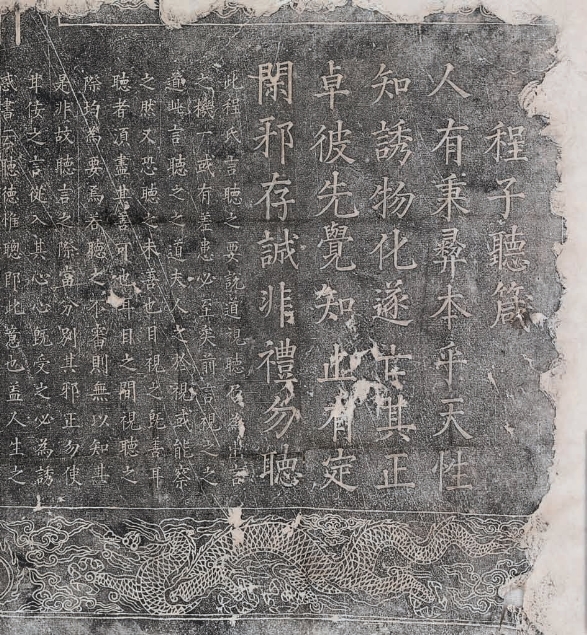 程子聽箴
人有秉彝本乎天性
知誘物化遂亡其正
卓彼先覺知止有定
閑邪存誠非禮勿聽
此程氏言聽之要說道視聽為出言
之機一或有差患必至矣前言視之之
道此言聽之之道夫人之於視或能察
之然又恐聽之未善也目視之旣善耳
聽者湏盡其善可也耳目之間視聽之
際均為要焉若聽之不審則無以知其
是非故聽言之際當分别其邪正勿使
甘佞之言從入其心心旣受之必為誘
惑書云聽徳惟聰即此意也盖人生之